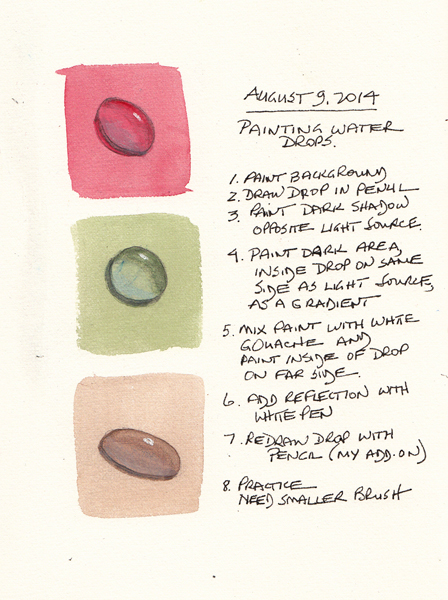 AUGUST 9, 2014
PAINTING WATER
DROPS.
1. PAINT BACKGROUND
2. DRAW DROP IN PENCIL
3. PAINT DARK SHADOW
OPPOSITE LIGHT SOURCE.
4. PAINT DARK AREA,
INSIDE DROP ON SAME
SIDE AS LIGHT SOURCE,
AS A GRADIENT
5. MIX PAINT WITH WHITE
GOUACHE AND
PAINT INSIDE OF DROP
ON FAR SIDE.
6. ADD REFLECTION WITH
WHITE PEN
7. REDRAW DROP WITH
PENCIL (MY ADD-ON)
8. PRACTICE
NEED SMALLER BRUSH